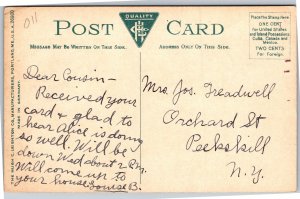 011
POST CARD
QUALITY
MESSAGE MAY BE WRITTEN ON THIS SIDE.
ADDRESS ONLY ON THIS SIDE.
Place the Stamp here
ONE CENT
for United States
and Island Possessions
Cuba, Canada and
Mexico
TWO CENTS
for Foreign.
MADE IN GERMANY
Dear Cousin-
Received your
card & glad to
hear Alice is doing
so well. Will be
down Wed about 2
Will come up to
your house
Mrs Jos. Treadwell
Orchard St
Peekskill
N.Y.